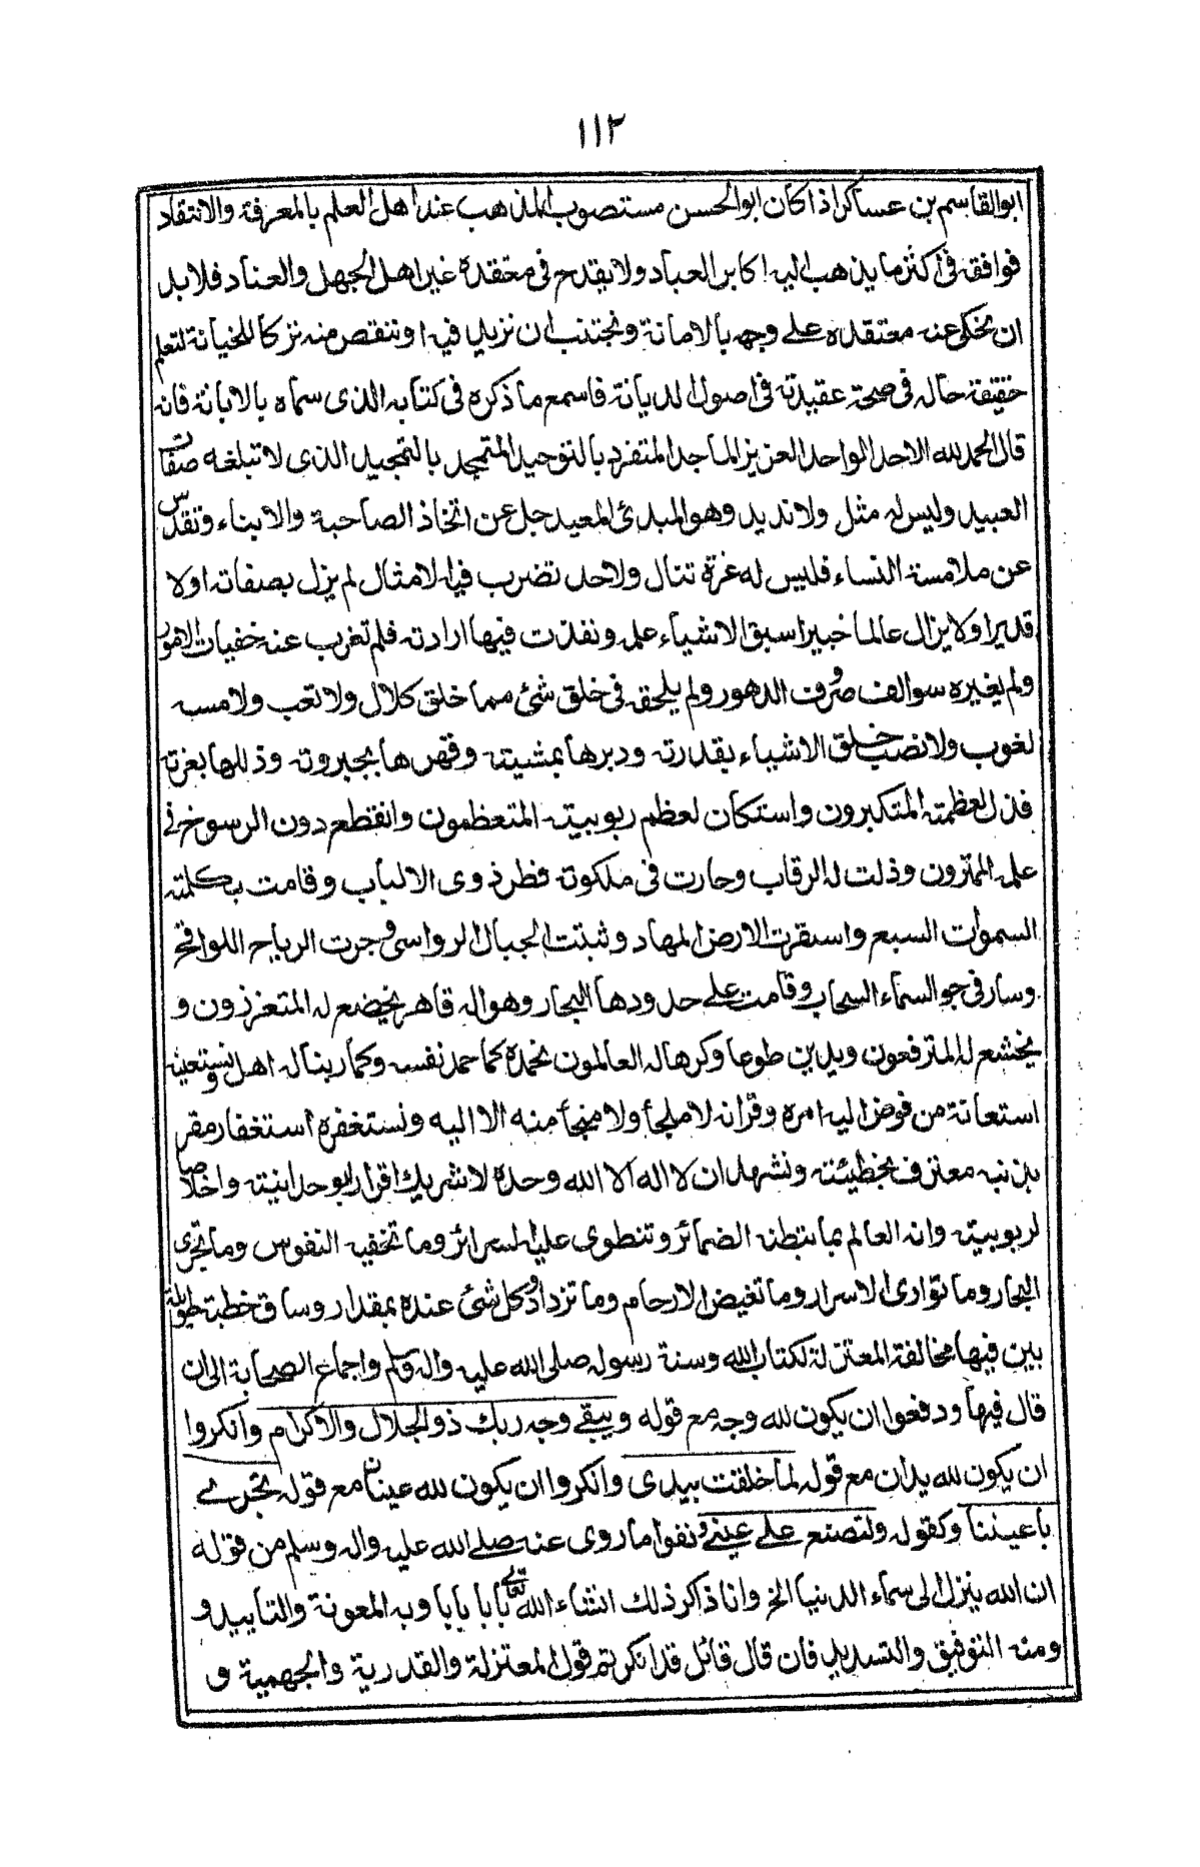 ١١٢
ابوالقاسم بن عساكر اذا كان ابوالحسن مستصوب المذهب عند اهل العلم بالمعرفة والانتقاد
فوافقه فى اكثر ما يذهب اليه اكابر العباد ولا يقدح فى معتقده غير اهل الجهل والعناد فلا بد
ان نحكى عنه معتقده على وجهه بالامانة ونجتنب ان نزيد فيه او ننقص منه تركا للخيانة لتعلم
حقيقة حاله فى صحة عقيدته فى اصول الديانة فاسمع ما ذكره فى كتابه الذى سماه بالابانة فانه
قال الحمد لله الاحد الواحد العزيز الماجد المتفرد بالتوحيد المتمجد بالتمجيد الذى لا تبلغه صفات
العبيد وليس له مثل ولا نديد وهو المبدئ المعيد جل عن اتخاذ الصاحبة والابناء وتقدس
عن ملامسة النساء فليس له عزة تنال ولا حد تضرب فيه الامثال لم يزل بصفاته اولا
قديرا ولا يزال عالما خبيرا سبق الاشياء علمه ونفذت فيها ارادته فلم تعزب عنه خفيات الامور
ولم يغيره سوالف صروف الدهور ولم يلحقه فى خلق شئ مما خلق كلال ولا تعب ولا مسه
لغوب ولا نصب خلق الاشياء بقدرته ودبرها بمشيته وقهرها بجبروته وذللها بعزته
فذل لعظمته المتكبرون واستكان لعظم ربوبيته المتعظمون وانقطع دون الرسوخ فى
علمه الممترون وذلت له الرقاب وحارت فى ملكوته فطن ذوى الالباب وقامت بكلمته
السموات السبع واستقرت الارض المهاد وثبتت الجبال الرواسى وجرت الرياح اللواقح
وسار فى جو السماء السحاب وقامت على حدودها البحار وهو اله قاهر يخضع له المتعززون و
يخشع له المترفعون ويدين طوعا وكرها له العالمون نحمده كما حمد نفسه وكما ربنا له اهل ونستعينه
استعانة من فوض اليه امره وقر انه لا ملجأ ولا منجأ منه الا اليه ونستغفره استغفار مقر
بذنبه معترف بخطيئته ونشهد ان لا اله الا الله وحده لا شريك اقرارا بوحدانيته واخلاصا
لربوبيته وانه العالم بما تبطنه الضمائر وتنطوى عليه السرائر وما تخفيه النفوس وما تجرى
البحار وما توارى الاسرار وما تغيض الارحام وما تزداد وكل شئ عنده بمقدار وساق خطبة طويلة
بين فيها مخالفة المعتزلة لكتاب الله وسنة رسوله صلى الله عليه واله وسلم واجماع الصحابة الى ان
قال فيها ودفعوا ان يكون لله وجه مع قوله ويبقى وجه ربك ذو الجلال والاكرام وانكروا
ان يكون لله يدان مع قوله لما خلقت بيدى وانكروا ان يكون لله عينان مع قوله تجرى
باعيننا وكقوله ولتصنع على عينى ونفوا ما روى عنه صلى الله عليه واله وسلم من قوله
ان الله ينزل الى سماء الدنيا الخ وانا ذاكر ذلك انشاء الله تعالى بابا بابا وبه المعونة والتاييد و
ومنه التوفيق والتسديد فان قال قائل قد انكرتم قول المعتزلة والقدرية والجهمية و